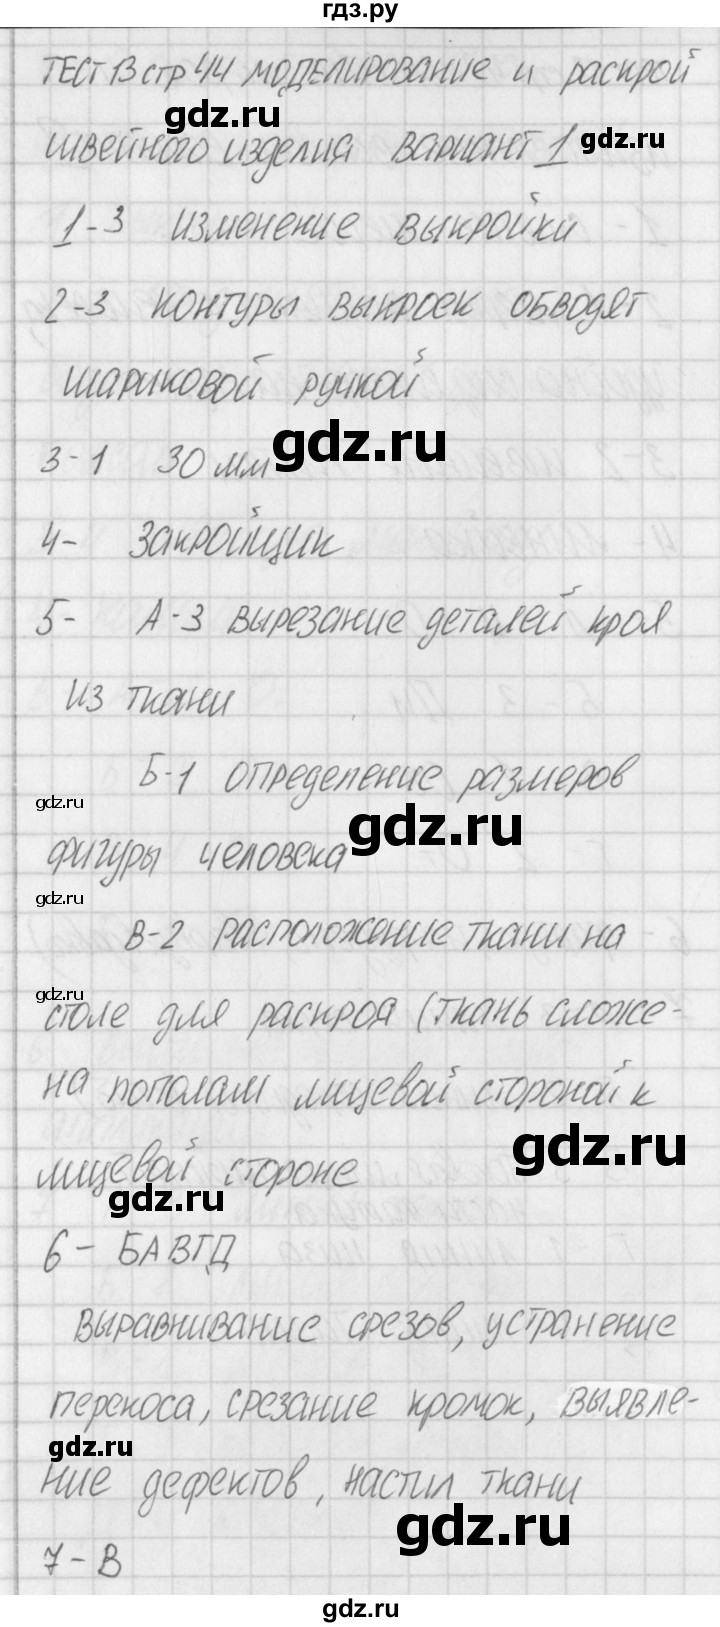 гдз.ру
ТЕСТ 13 стр 44 моделирование и раскрой
gdz.ru
gdz.ru
швейного изделия вариант 1
1-3 изменение выкройки
2-3 контуры выкроек обводят
шариковой ручкой
gdz.ru
3-1 30 мм
4- закройщик
5- А-3 вырезание деталей кроя
из ткани
Б-1 определение размеров
gdz.ru
gdz.ru
фигуры человека
gdz.ru
В-2 расположение ткани на
gdz.ru
столе для раскроя (ткань сложе-
на пополам лицевой стороной к
gdz.ru
лицевой стороне
gdz.ru
6- БАВГД
выравнивание срезов, устранение
перекоса, срезание кромок, выявле-
gdz.ru
ние дефектов, настил ткани
gdz.ru
7-В
gdz.ru